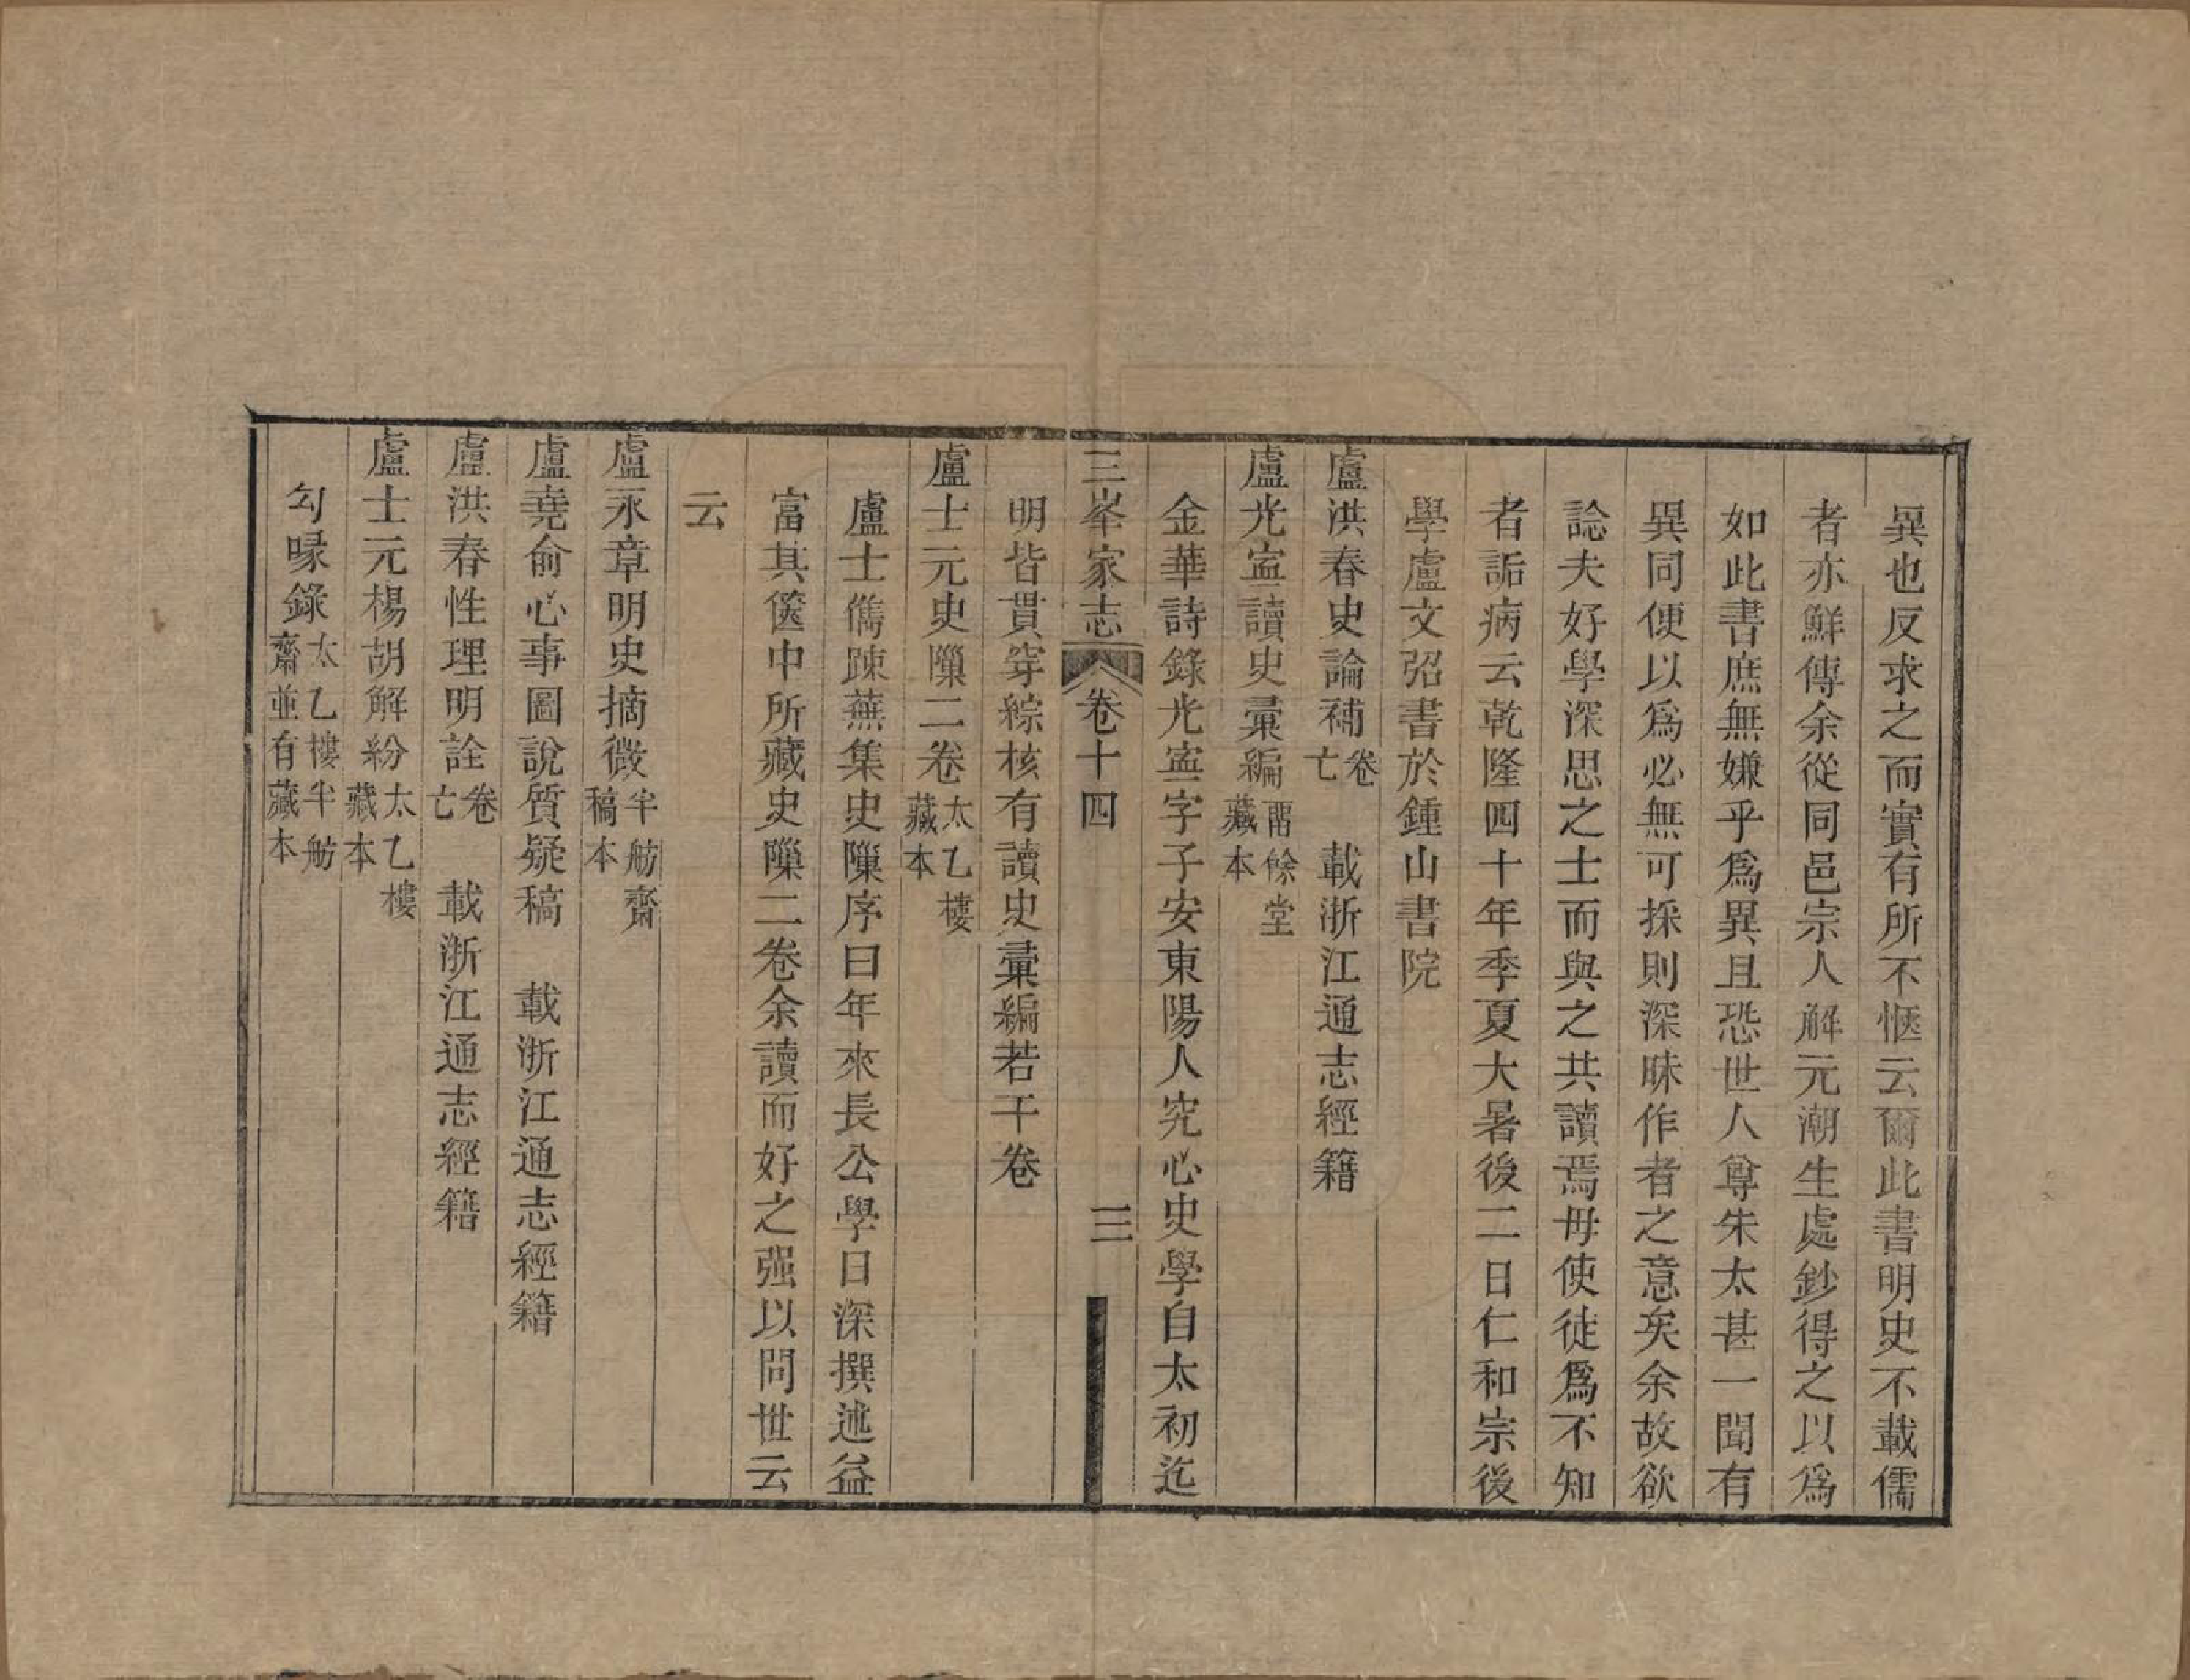 異也反求之而實有所不愜云爾此書明史不載儒
者亦鮮傳余從同邑宗人解元潮生處鈔得之以爲
如此書庶無嫌乎爲異且恐世人尊朱太甚一聞有
異同便以爲必無可採則深昧作者之意矣余故欲
諗夫好學深思之士而與之共讀焉毋使徒爲不知
者詬病云乾隆四十年季夏大暑後二日仁和宗後
學盧文弨書於鍾山書院
盧洪春史論補卷亡　載浙江通志經籍
盧光寍讀史彙編畱餘堂藏本
金華詩錄光寍字子安東陽人究心史學自太初迄
三峯家志　卷十四　三
明皆貫穿綜核有讀史彙編若干卷
盧士元史隟二卷太乙樓藏本
盧士儁踈蕪集史隟序曰年來長公學日深撰述益
富其篋中所藏史隟二卷余讀而好之强以問世云
云
盧永章明史摘微半舫齋稿本
盧堯俞心事圖說質疑稿　載浙江通志經籍
盧洪春性理明詮卷亡　載浙江通志經籍
盧士元楊胡解紛太乙樓藏本
勾喙錄太乙樓半舫齋並有藏本